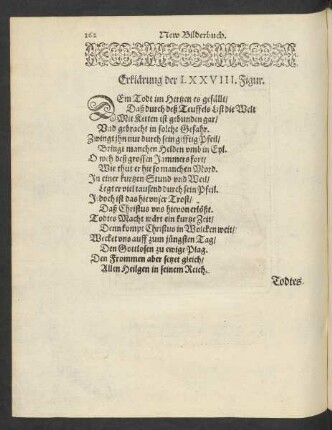 262 New Bilderbuch.
Erklärung der LXXVIII. Figur.
DEm Todt im Hertzen es gefällt/
Daß durch deß Teuffels List die Welt
Mit Ketten ist gebunden gar/
Vnd gebracht in solche Gefahr.
Zwingt jhn nur durch sein gifftig Pfeil/
Bringt manchen Helden vmb in Eyl.
O weh deß grossen Jammers fort/
Wie thut er hie so manchen Mord.
In einer kurtzen Stund vnd Weil/
Legt er viel tausend durch sein Pfeil.
Jedoch ist das hie vnser Trost/
Daß Christus vns hiervon erlößt.
Todtes Macht wärt ein kurtze Zeit/
Denn kompt Christus in Wolcken weit/
Wecket vns auff zum jüngsten Tag/
Den Gottlosen zu ewige Plag.
Den Frommen aber setzet gleich/
Allen Heilgen in seinem Reich.
Todtes